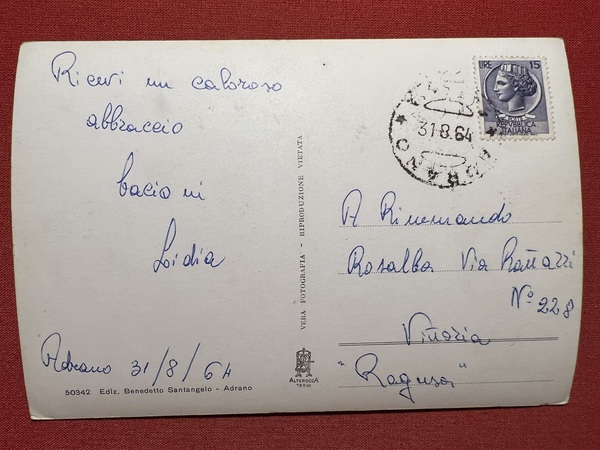 Ricevi un caloroso
abbraccio
bacioni
Lidia
Adrano 31/8/64
50342 Ediz. Benedetto Santangelo - Adrano
VERA FOTOGRAFIA - RIPRODUZIONE VIETATA
ALTEROCCA
TERNI
LIRE 15
REPUBBLICA
ITALIANA
31.8.64
ADRANO
A Rimmaudo
Rosalba Via Rattazzi
N° 228
Vittoria
"Ragusa"